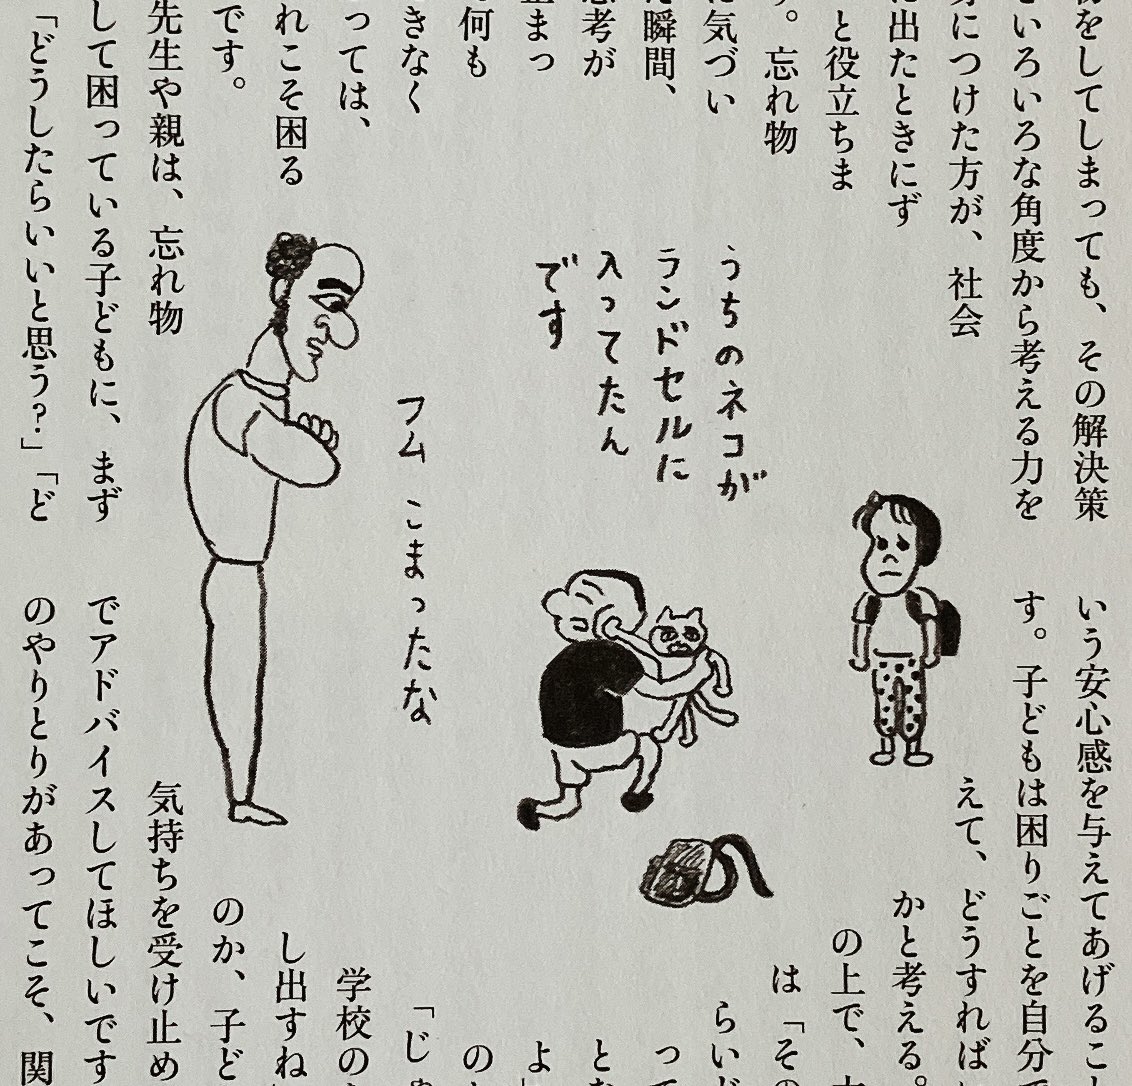 物をしてしまっても、その解決策
いろいろな角度から考える力を
につけた方が、社会
に出たときにず
と役立ちま
す。忘れ物
に気づい
た瞬間、
思考が
止まっ
何も
きなく
っては、
れこそ困る
です。
先生や親は、忘れ物
して困っている子どもに、まず
「どうしたらいいと思う?」「ど
うちのネコが
ランドセルに
入ってたん
です
フム こまったな
いう安心感を与えてあげるこ
す。子どもは困りごとを自分で
えて、どうすれば
かと考える。
の上で、
は「その
らい
って
と
よ」
の
「じゃ
学校の
し出すね
のか、子ど
気持ちを受け止め
でアドバイスしてほしいです
のやりとりがあってこそ、関